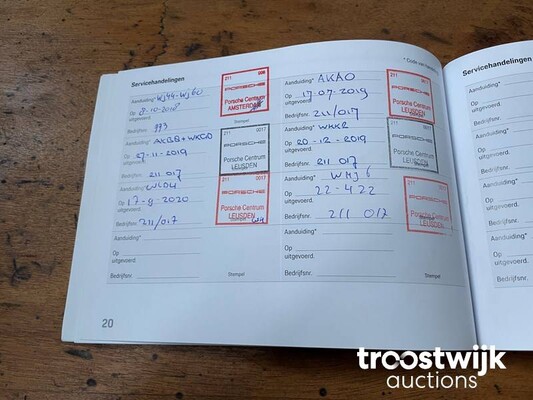 Servicehandelingen
* Code van
Aanduiding* Wj44-Wj60
Op 8-10-2018
uitgevoerd.
Bedrijfsnr. 993
Stempel
211
PORSCHE
Porsche Centrum
AMSTERDAM
Aanduiding* AKGB+WKGD
Op 27-11-2019
uitgevoerd.
Bedrijfsnr. 211 017
211 0017
PORSCHE
Porsche Centrum
LEUSDEN
Aanduiding*
Op 17-9-2020
uitgevoerd.
Bedrijfsnr. 211/017
211 0017
PORSCHE
Porsche Centrum
LEUSDEN
Stempel
Aanduiding*
Op
uitgevoerd.
Bedrijfsnr.
Stempel
Aanduiding* AKAO
Op 17-07-2019
uitgevoerd.
Bedrijfsnr. 211/017
211
PORSCHE
Porsche Centrum
LEUSDEN
Aanduiding* WKK2
Op 20-12-2019
uitgevoerd.
Bedrijfsnr. 211 017
211 0017
PORSCHE
Porsche Centrum
LEUSDEN
Aanduiding* WMj6
Op 22-4-22
uitgevoerd.
Bedrijfsnr. 211 017
211 0017
PORSCHE
Porsche Centrum
LEUSDEN
Aanduiding*
Op
uitgevoerd.
Bedrijfsnr.
Stempel
20
Servicehandelingen
Aanduiding*
Op
uitgevoerd.
Bedrijfsnr.
Aanduiding*
Op
uitgevoerd.
Bedrijfsnr.
Aanduiding*
Op
uitgevoerd.
Bedrijfsnr.
Aanduiding*
Op
uitgevoerd.
Bedrijfsnr.
troostwijk
auctions